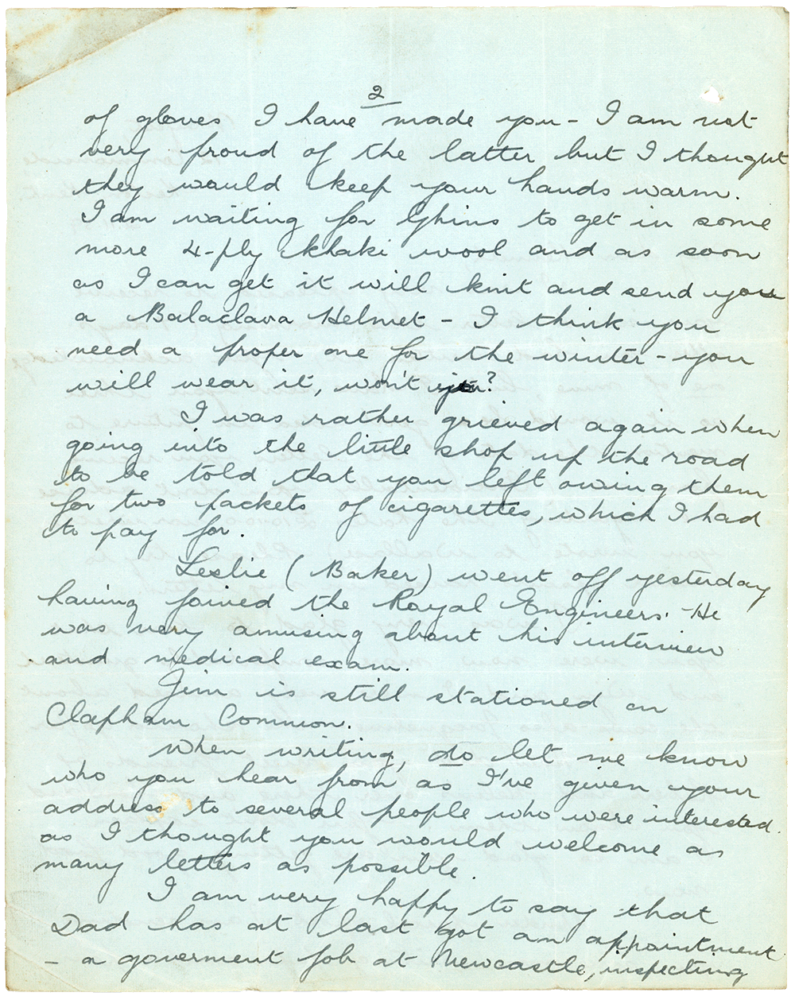 2
of gloves I have made you - I am not
very proud of the latter but I thought
they would keep your hands warm.
I am waiting for Ghins to get in some
more 4-ply khaki wool and as soon
as I can get it will knit and send you
a Balaclava Helmet - I think you
need a proper one for the winter - you
will wear it, won't you?
I was rather grieved again when
going into the little shop up the road
to be told that you left owing them
for two packets of cigarettes, which I had
to pay for.
Leslie (Baker) went off yesterday
having joined the Royal Engineers. He
was very amusing about his interview
and medical exam.
Jim is still stationed on
Clapham Common.
When writing, do let me know
who you hear from as I've given your
address to several people who were interested
as I thought you would welcome as
many letters as possible.
I am very happy to say that
Dad has at last got an appointment
- a goverment job at Newcastle, inspecting